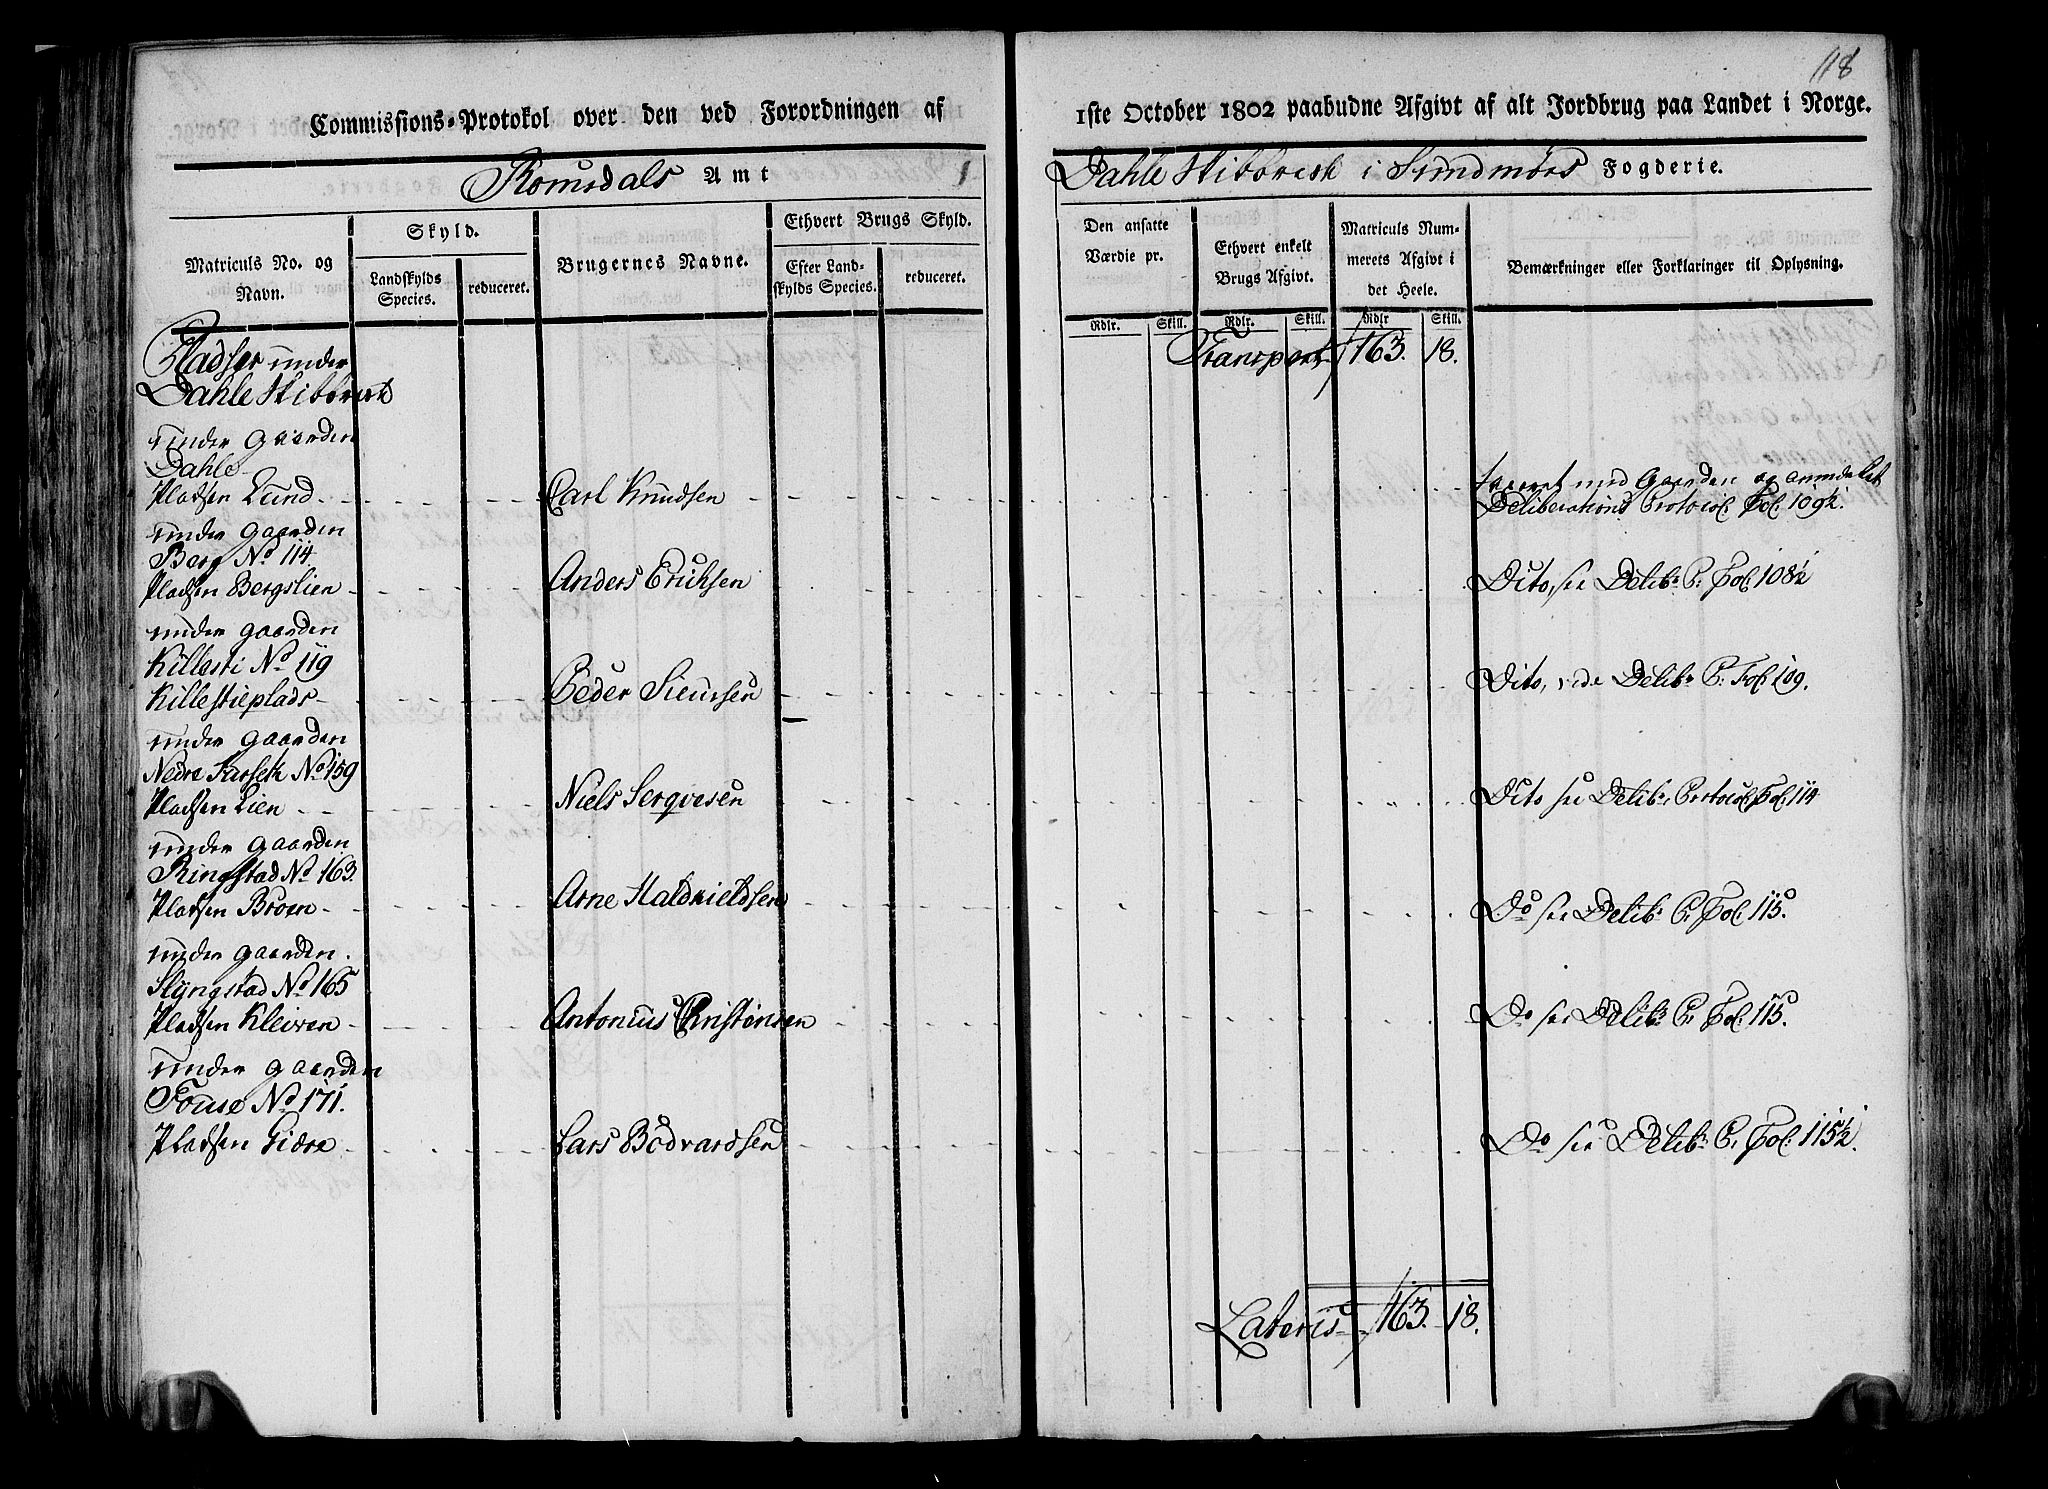 118
Commissions-Protokol over den ved Forordningen af
1ste October 1802 paabudne Afgivt af alt Jordbrug paa Landet i Norge.
Romsdals Amt
Dahle Skibbrede i Sundmörs Fogderie.
Matriculs No. og Navn.
Skyld.
Landskylds Species.
reduceret.
Brugernes Navne.
Ethvert Brugs Skyld.
Efter Landskylds Species.
reduceret.
Den ansatte Værdie pr.
Ethvert enkelt Brugs Afgivt.
Matriculs Nummerets Afgivt i det Heele.
Bemærkninger eller Forklaringer til Oplysning.
Rdlr. Skill. Rdlr. Skill. Rdlr Skill.
Transport 163. 18.
Pladser under
Dahle Skibbrede
under Gaarden
Dahle
Pladsen Lund Carl Knudsen
taxeret med Gaarden og anmeldet
Deliberations Protocol Fol. 109½.
under Gaarden
Berg No 114.
Pladsen Bergslien Anders Erichsen Dito, see Delib: P. Fol. 108½
under Gaarden
Killesti No 119
Killestieplads Peder Siursen Dito, vide Delib: P. Fol. 109.
under Gaarden
Nedre No 159
Pladsen Lien Niels Dito see Delib: Protocol Fol. 114
under Gaarden
Ringstad No 163.
Pladsen Broen Arne Do see Delib: P. Fol. 115.
under Gaarden
Slyngstad No 165
Pladsen Kleiven Antonius Christensen Do see Delib: P. Fol. 115.
under Gaarden
No 171.
Pladsen Lars Bodvardsen Do see Delib: P. Fol. 115½.
Lateris 163. 18.